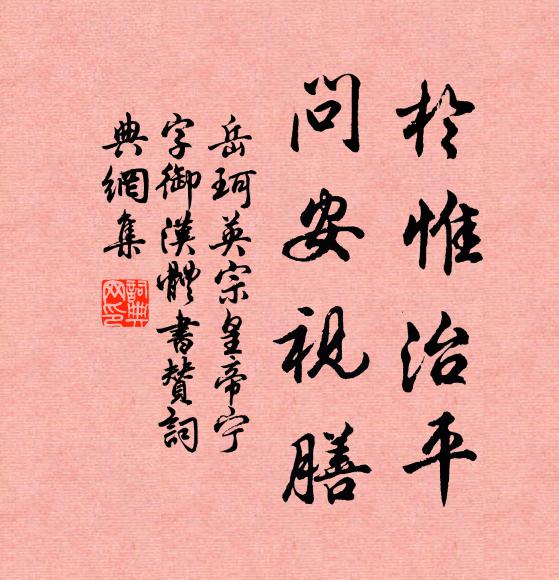 於惟治平
問安視膳
岳珂英宗皇帝宁
字御漢體書贊詞
典網集
詞典
网印